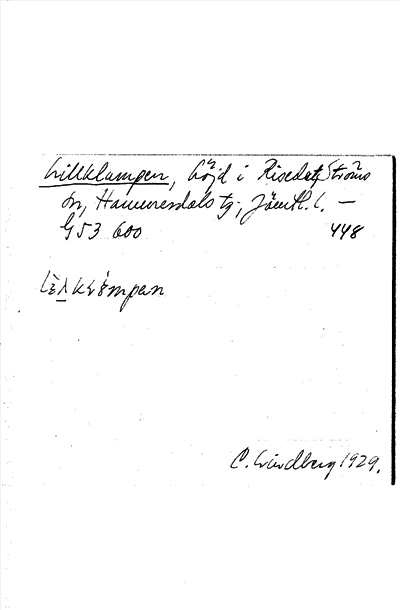 Lillklumpen, höjd i Risede, Ströms
sn, Hammerdals tg, Jämtl. l. —
G53 600 448
C. Lindberg 1929.